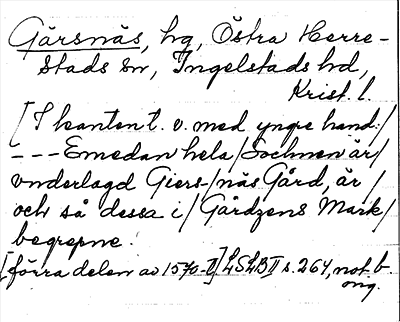 Gärsnäs, hg, Östra Herre-
stads sn, Ingelstads hd,
Krist. l.
[I kanten t. v. med yngre hand:/
--- Emedan hela/Sochnen är/
vnderlagd Giers-/näs Gård, är/
och så dessa i/Gårdzens Mark/
begrepne.
[förra delen av 1570-t.] LSLB II s. 264, not b.
omg.